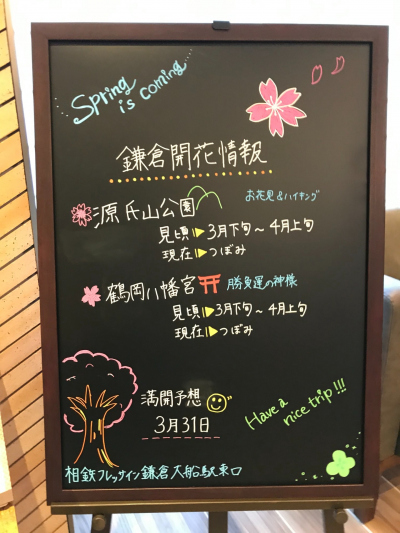 Spring
is coming
鎌倉開花情報
源氏山公園
お花見&ハイキング
見頃▶3月下旬～4月上旬
現在▶つぼみ
鶴岡八幡宮 勝負運の神様
見頃▶3月下旬～4月上旬
現在▶つぼみ
満開予想
3月31日
Have a
nice trip!!!
相鉄フレッサイン鎌倉大船駅東口